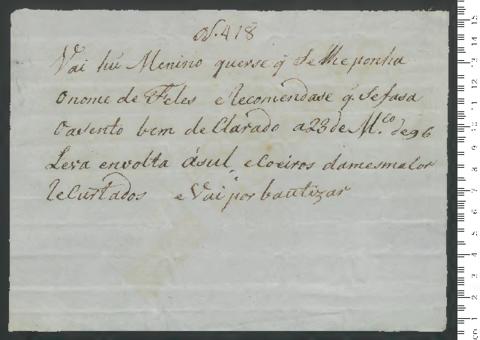 N. 418
Vai hú Menino querse q̃ Se lhe ponha
O nome de Feles e Recomendase q̃ Sefasa
O asento bem de Clarado a 23 de M.ço de 96
Leva envolta ásul, e Coeiros damesma Cor
ReCurtados e Vai por bautizar